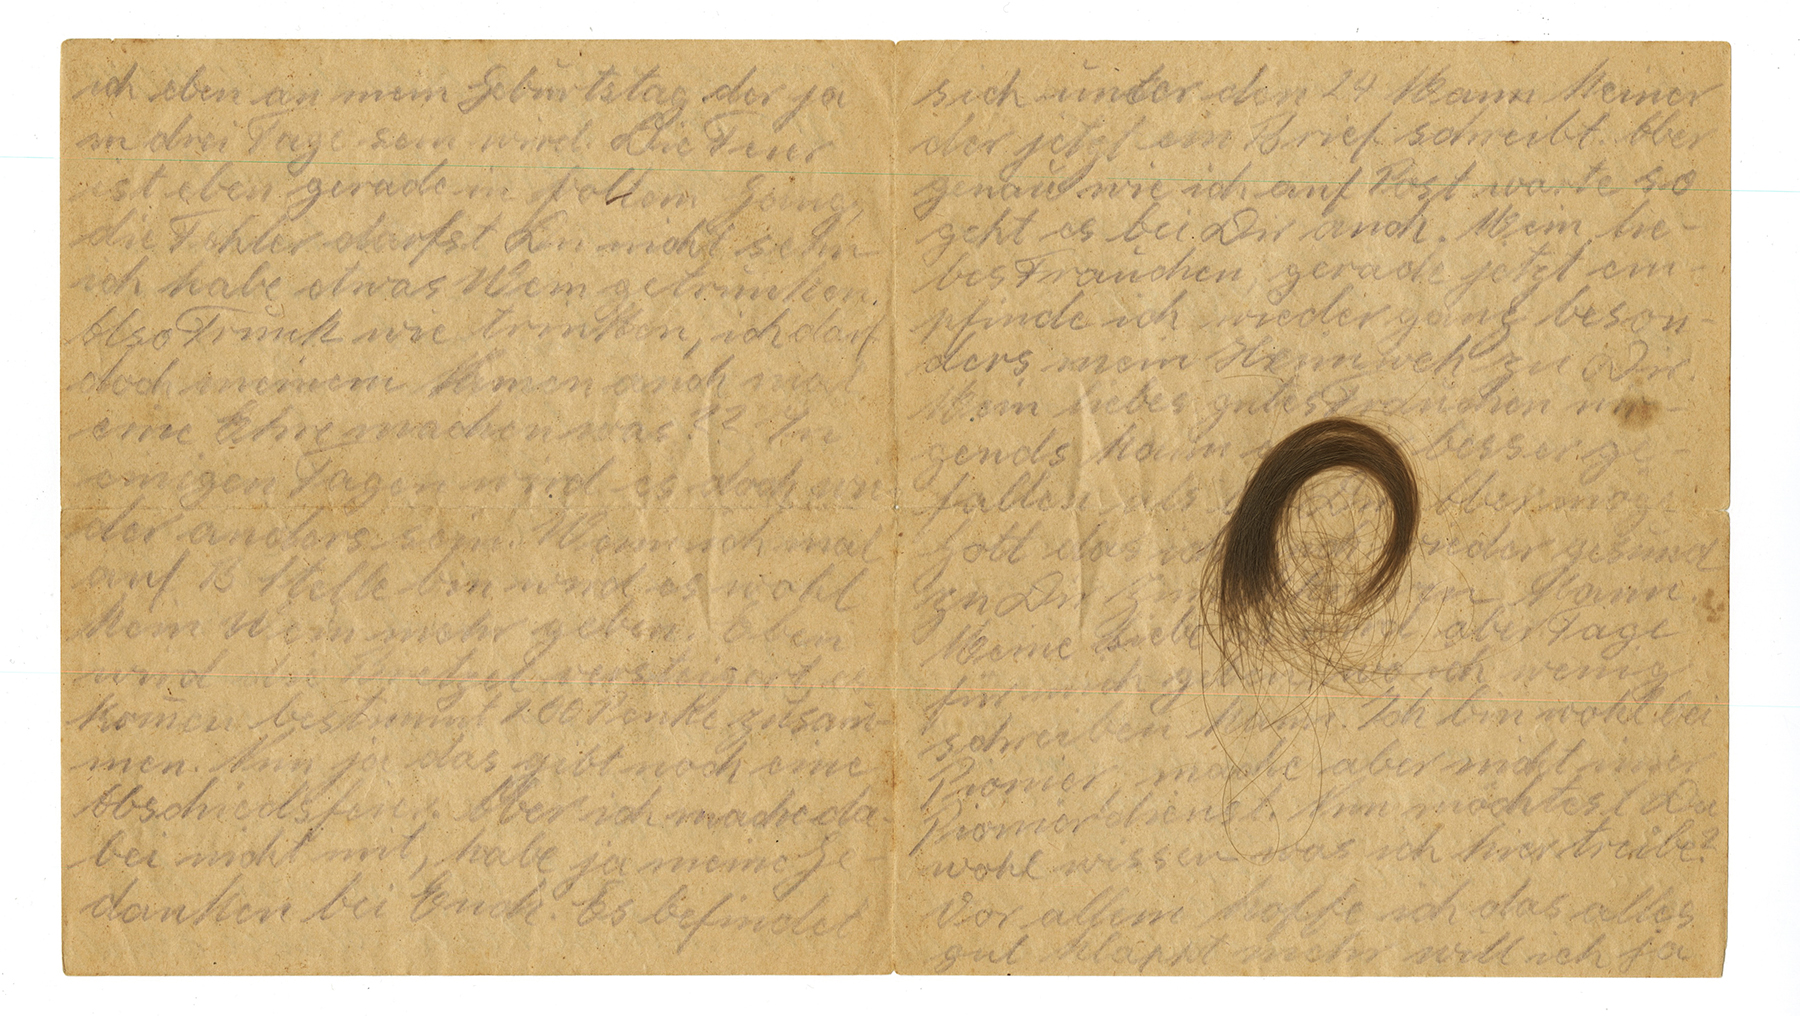 ich eben an mein Geburtstag der ja
in drei Tage sein wird. Die Feier
ist eben gerade in vollem Gang,
die Fehler darfst Du nicht sehn
ich habe etwas Wein getrunken.
Also Trink wie trinken, ich darf
doch meinem Namen auch mal
eine Ehre machen was?? In
einigen Tagen wird es doch wie
der anders sein. Wenn ich mal
auf B Stelle bin wird es wohl
kein Wein mehr geben. Eben
wird die Bretzel versteigert es
komen bestimmt 100 Penke zusam-
men. Nun ja das gibt noch eine
Abschiedsfeier. Aber ich mache da-
bei nicht mit, habe ja meine Ge-
danken bei Euch. Es befindet
sich unter den 24 Mann Keiner
der jetzt ein Brief schreibt. Aber
genau wie ich auf Post warte so
geht es bei Dir auch. Mein lie-
bes Frauchen, gerade jetzt em-
pfinde ich wieder ganz beson-
ders mein Heimweh zu Dir.
Mein liebes gutes Frauchen nir-
gends kann besser ge-
fallen als Dir Aber möge
Gott das ich wieder gesund
zu Dir kann.
Meine Liebe wird aber Tage
für mich geben, wo ich wenig
schreiben kann. Ich bin wohl bei
Pionier, mache aber nicht imer
Pionierdienst. Nun möchtest Du
wohl wissen was ich hier treibe?
Vor allem hoffe ich das alles
gut klappt mehr will ich ja